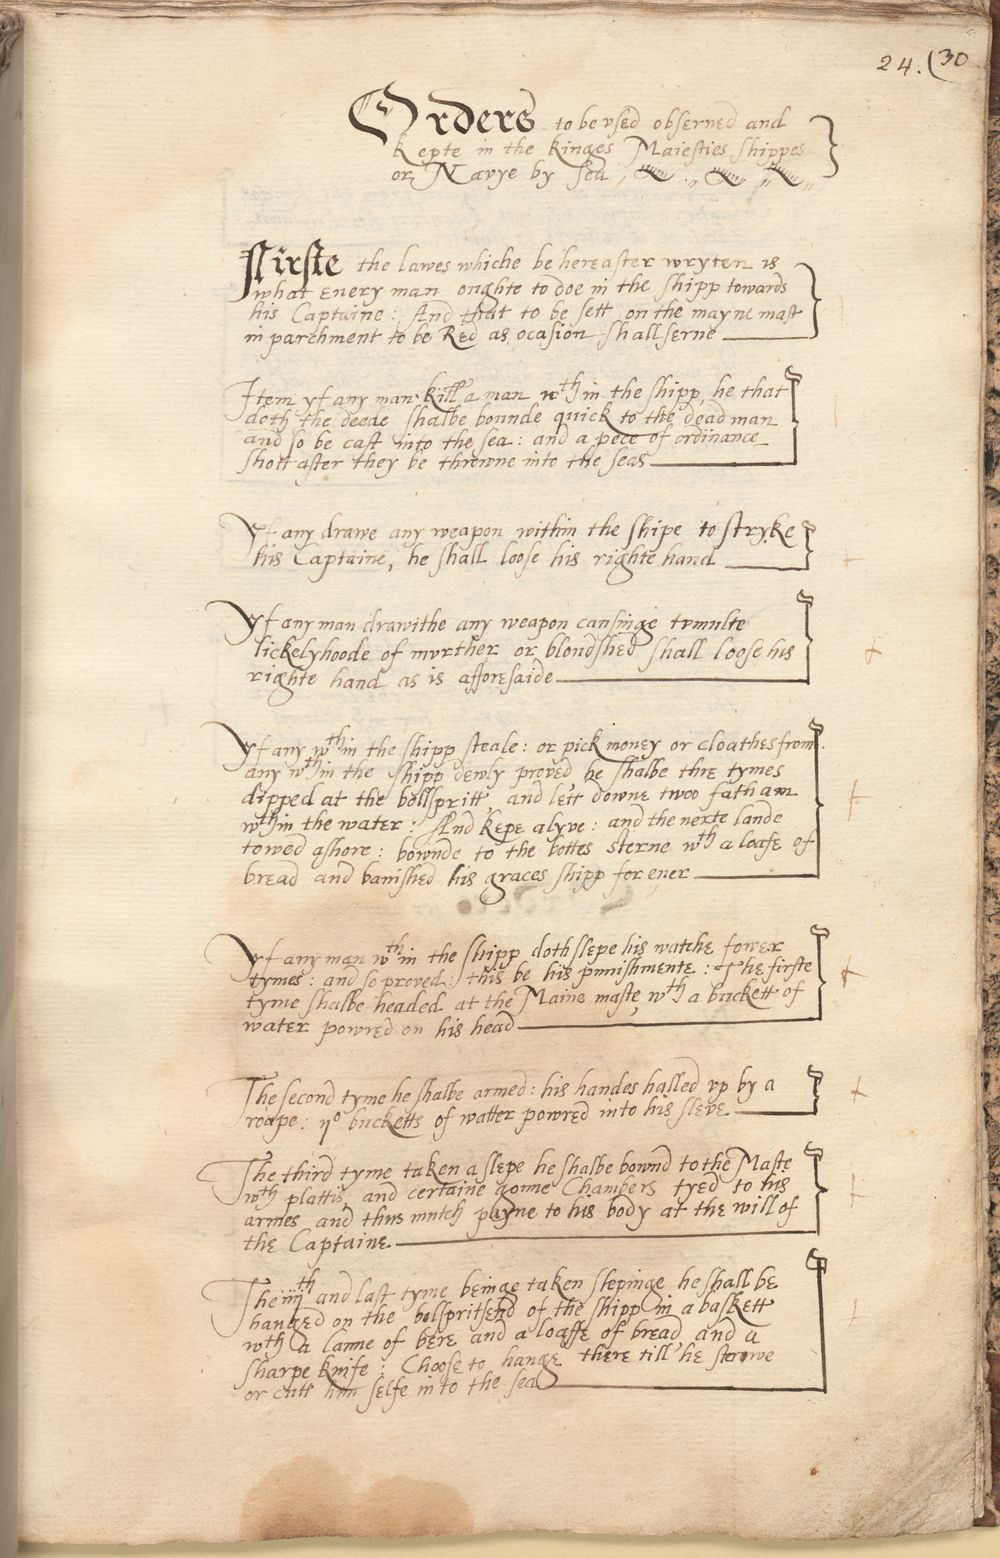 24. (30
Orders to be vsed obserued and
kepte in the kinges Maiesties shippes
or Navye by sea,
Firste the lawes whiche be hereafter wryten is
what euery man oughte to doe in the shipp towards
his Captaine: And that to be sett on the mayne mast
in parchment to be Red as ocasion shall serue
Item yf any man kill a man wth in the shipp, he that
doth the deede shalbe bounde quick to the dead man
and so be cast into the sea: and a pece of ordinance
shott after they be throwne into the seas
Yf any drawe any weapon within the shipe to stryke
his Captaine, he shall loose his righte hand
Yf any man drawithe any weapon causinge tvmulte
lickelyhoode of mvrther or bloudshed shall loose his
righte hand as is afforesaide
Yf any wth in the shipp steale: or pick money or cloathes from
any wth in the shipp dewly proved he shalbe thre tymes
dipped at the bollspritt, and lett downe twoo fatham
wthin the water: And kepe alyve: and the nexte lande
towed ashore: bownde to the bottes sterne wth a loafe of
bread and banished his graces shipp for euer
Yf any man wth in the shipp doth slepe his watche fower
tymes: and so proved: this be his punishmente: The firste
tyme shalbe headed at the Maine maste, wth a buckett of
water powred on his head
The second tyme he shalbe armed: his handes halled vp by a
roape: ijo bucketts of watter powred into his sleve
The third tyme taken a slepe he shalbe bownd to the Maste
wth plattis, and certaine gonne Chambers tyed to his
armes and thus mutch payne to his body at the will of
the Captaine
The iiijth and last tyme beinge taken slepinge he shall be
hanged on the bollspritsend of the shipp in a baskett
wth a canne of bere and a loaffe of bread and a
sharpe knife: Choose to hange there till he storwe
or cutt him selfe in to the sea